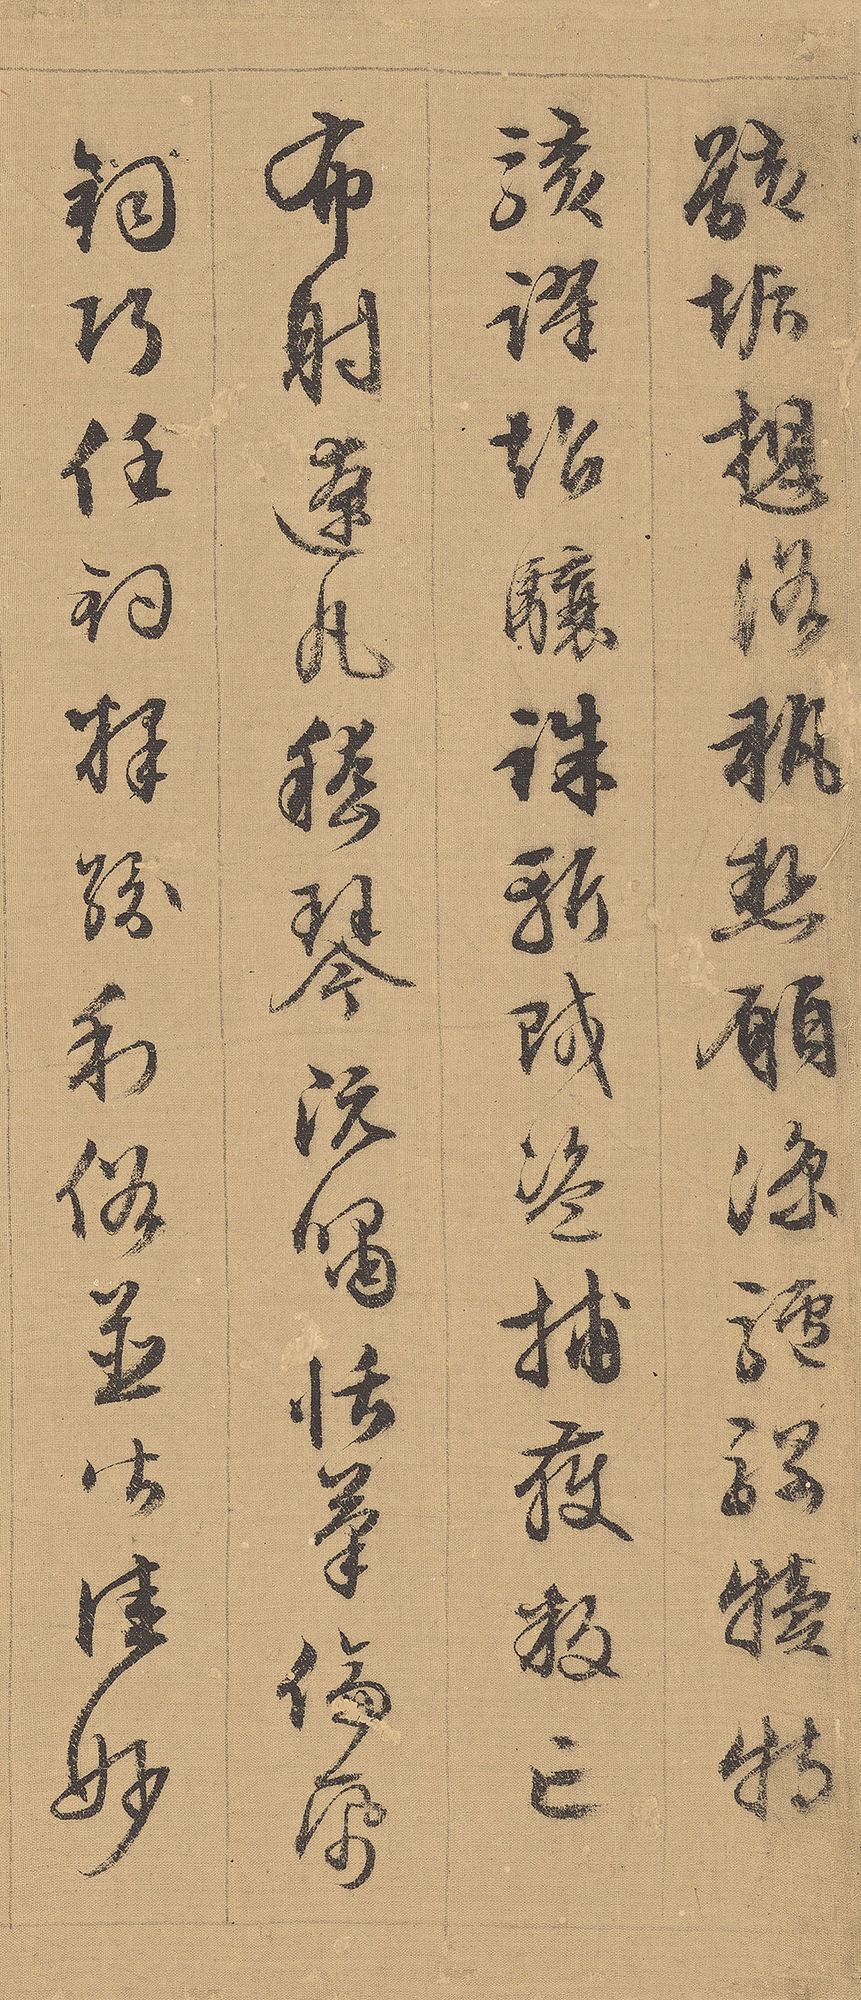 骸垢想浴執熱願涼驢騾犢特
駭躍超驤誅斬賊盜捕獲叛亡
布射遼丸嵇琴阮嘯恬筆倫帋
鈞巧任釣釋紛利俗並皆佳妙